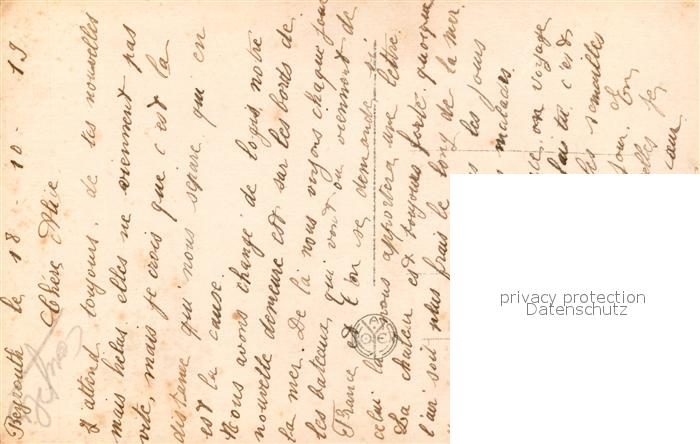 Beyrouth le 18-10-19
Chère Alice
J'attend toujours, de tes nouvelles
mais helas, elles ne viennent pas
vite, mais je crois que c'est la
distance qui nous sépare qui en
est la cause.
Nous avons changé de logis, notre
nouvelle demeure est sur les bords de
la mer. De la nous voyons chaque jour
les bateaux, qui vont ou viennent de
France et l'on se demande si
celui la nous apportera une lettre.
La chaleur est toujours forte, quoique
l'air soit plus frais le long de la mer.
les jours
malades.
on voyage
c'est
semailles
privacy protection
Datenschutz